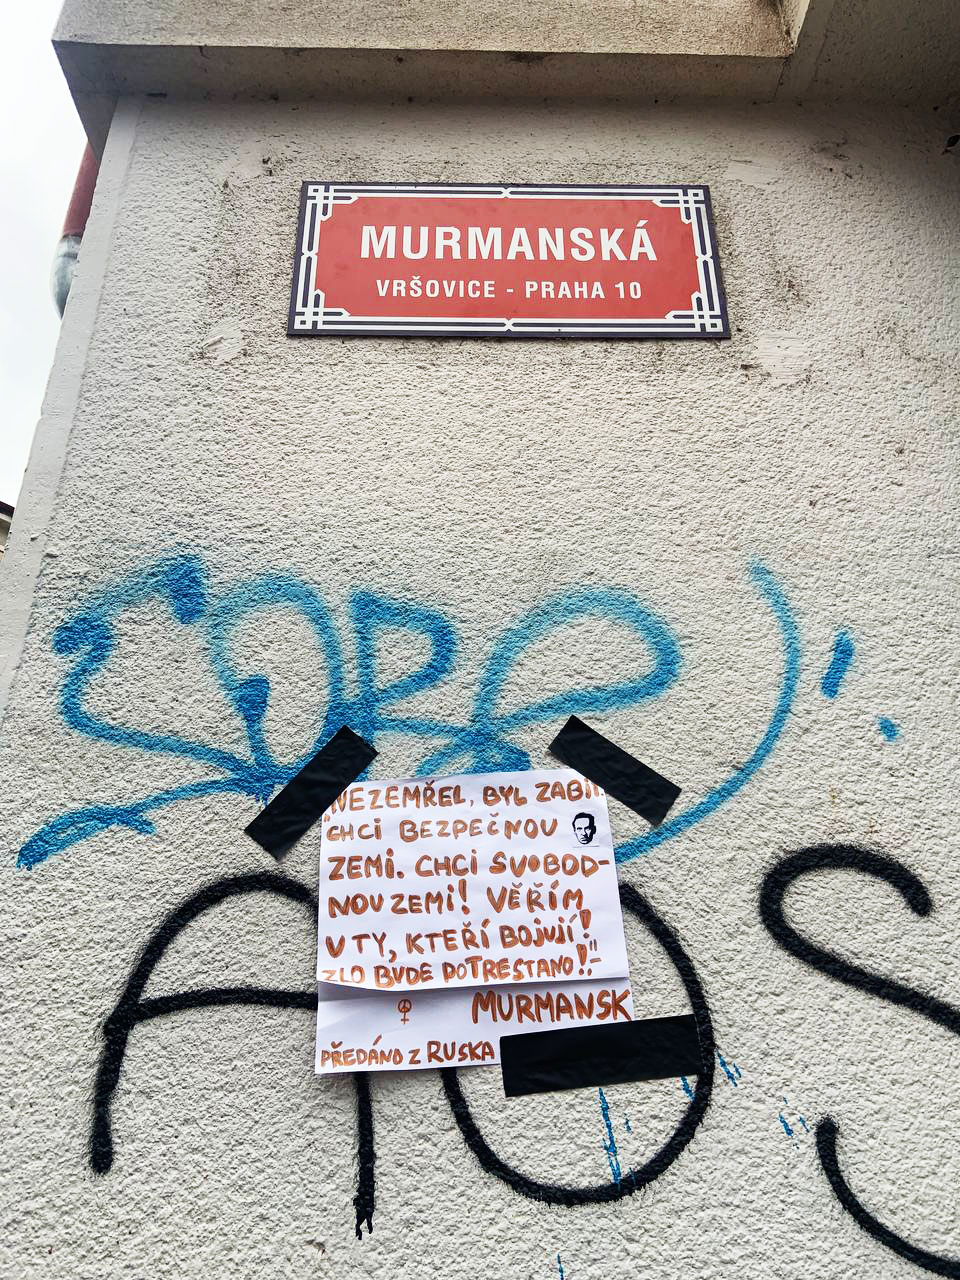 MURMANSKÁ
VRŠOVICE - PRAHA 10
"NEZEMŘEL, BYL ZABIT.
CHCI BEZPEČNOU
ZEMI. CHCI SVOBOD-
NOU ZEMI! VĚŘÍM
V TY, KTEŘÍ BOJUJÍ!
ZLO BUDE POTRESTANO!"-
MURMANSK
PŘEDÁNO Z RUSKA